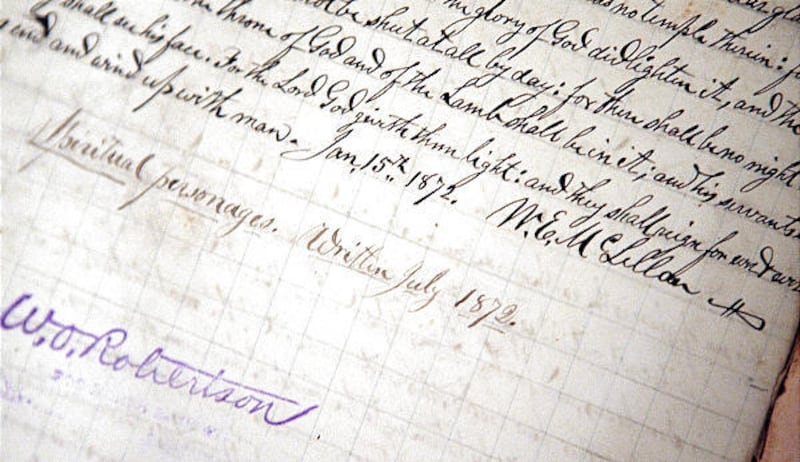 no temple therein: f
the glory of God did lighten it, and the
not be shut at all by day: for there shall be no night
throne of God and of the Lamb shall be in it; and his servants
shall see his face. For the Lord God giveth them light: and they shall reign for ever & ever
end and wind up with man. Jan, 15th. 1872. W. E. McLellan
Spiritual personages. Written July 1872.
W. O. Robertson